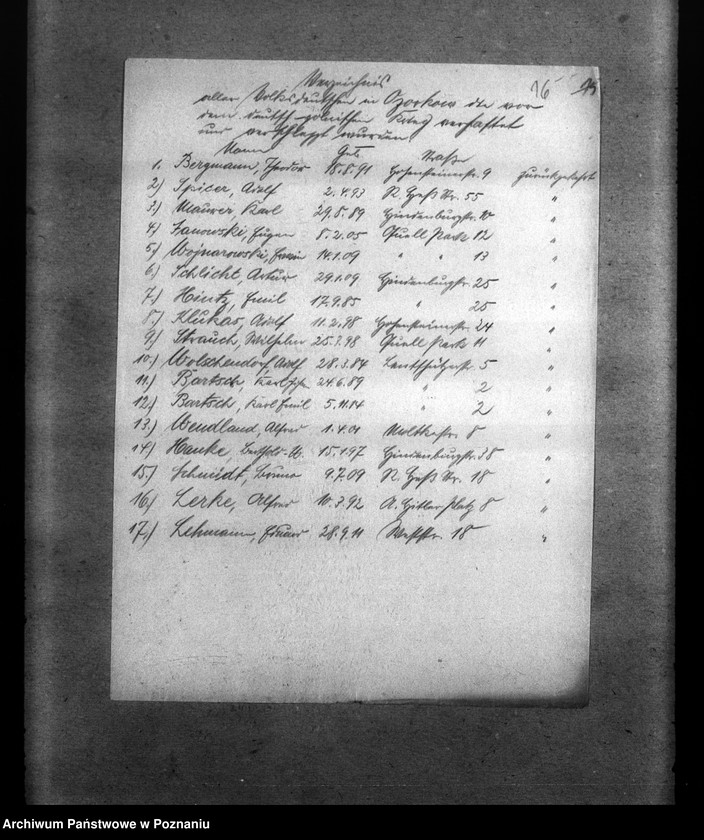 16 95
Verzeichnis
aller Volksdeutschen in Ozorkow die vor
dem deutsch-polnischen Krieg verhaftet
und verschleppt wurden.
Name Geb. Straße
1. Bergmann, Theodor 18.8.91 Hohensteinerstr. 9 zurückgekehrt
2.) Spicer, Adolf 2.4.93 R. Heß Str. 55 "
3.) Maurer, Karl 29.8.89 Hindenburgstr. 10 "
4.) Janowski, Eugen 8.2.05 Quell Park 12 "
5.) Wojnarowski, 14.1.09 " " 13 "
6.) Schlicht, Artur 29.1.09 Hindenburgstr. 25 "
7.) Hintz, Emil 17.9.85 " 25 "
8.) Klukas, Adolf 11.2.98 Hohensteinerstr. 24 "
9.) Strauch, Wilhelm 25.3.98 Quell Park 11 "
10.) Wolschendorf, Adolf 28.3.84 Lentschützstr. 5 "
11.) Bartsch, Karl 24.6.89 " 2 "
12.) Bartsch, Karl Emil 5.11.14 " 2 "
13.) Wendland, Alfred 1.4.01 Moltkestr. 8 "
14.) Hanke, Berthold 15.1.97 Hindenburgstr. 38 "
15.) Schmidt, Bruno 9.7.09 R. Heß Str. 18 "
16.) Lerke, Alfred 10.3.92 A. Hitler Platz 8 "
17.) Lehmann, Eduard 28.9.11 Weststr. 18 "
Archiwum Państwowe w Poznaniu